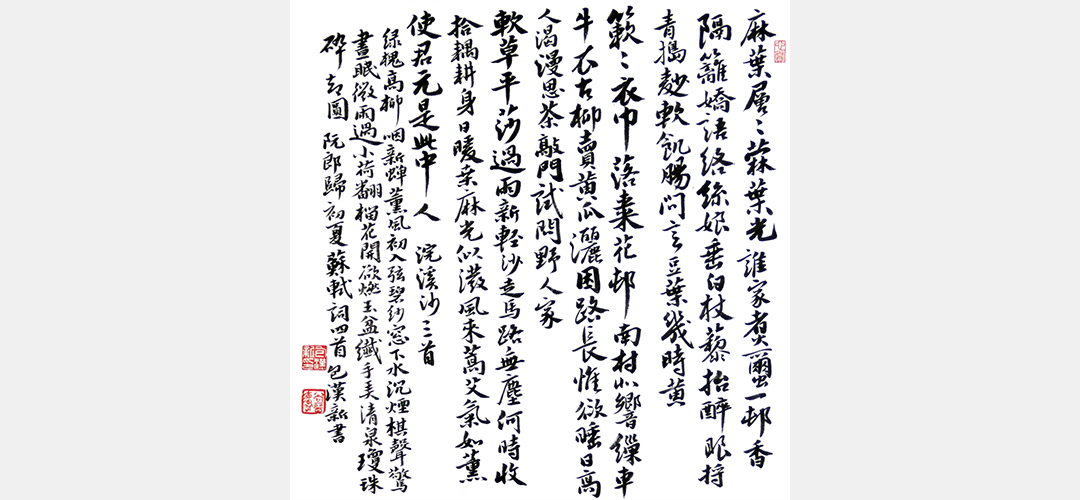 麻葉層〻葉光誰家煮一邨香
隔籬嬌語絡絲娘垂白杖藜抬醉眼捋
青搗麨軟飢腸問言豆葉幾時黃
簌〻衣巾落棗花邨南村北響繅車
牛衣古柳賣黃瓜酒困路長惟欲睡日高
人渴漫思茶敲門試問野人家
軟草平莎過雨新輕沙走馬路無塵何時收
拾耦耕身日暖桑麻光似潑風來蒿艾氣如薰
使君元是此中人 浣溪沙三首
綠槐高柳咽新蟬薰風初入弦碧紗窓下水沉煙棋聲驚
晝眠微雨過小荷翻榴花開欲燃玉盆纖手弄清泉瓊珠
碎却圓 阮郎歸初夏蘇軾詞四首包漢新書